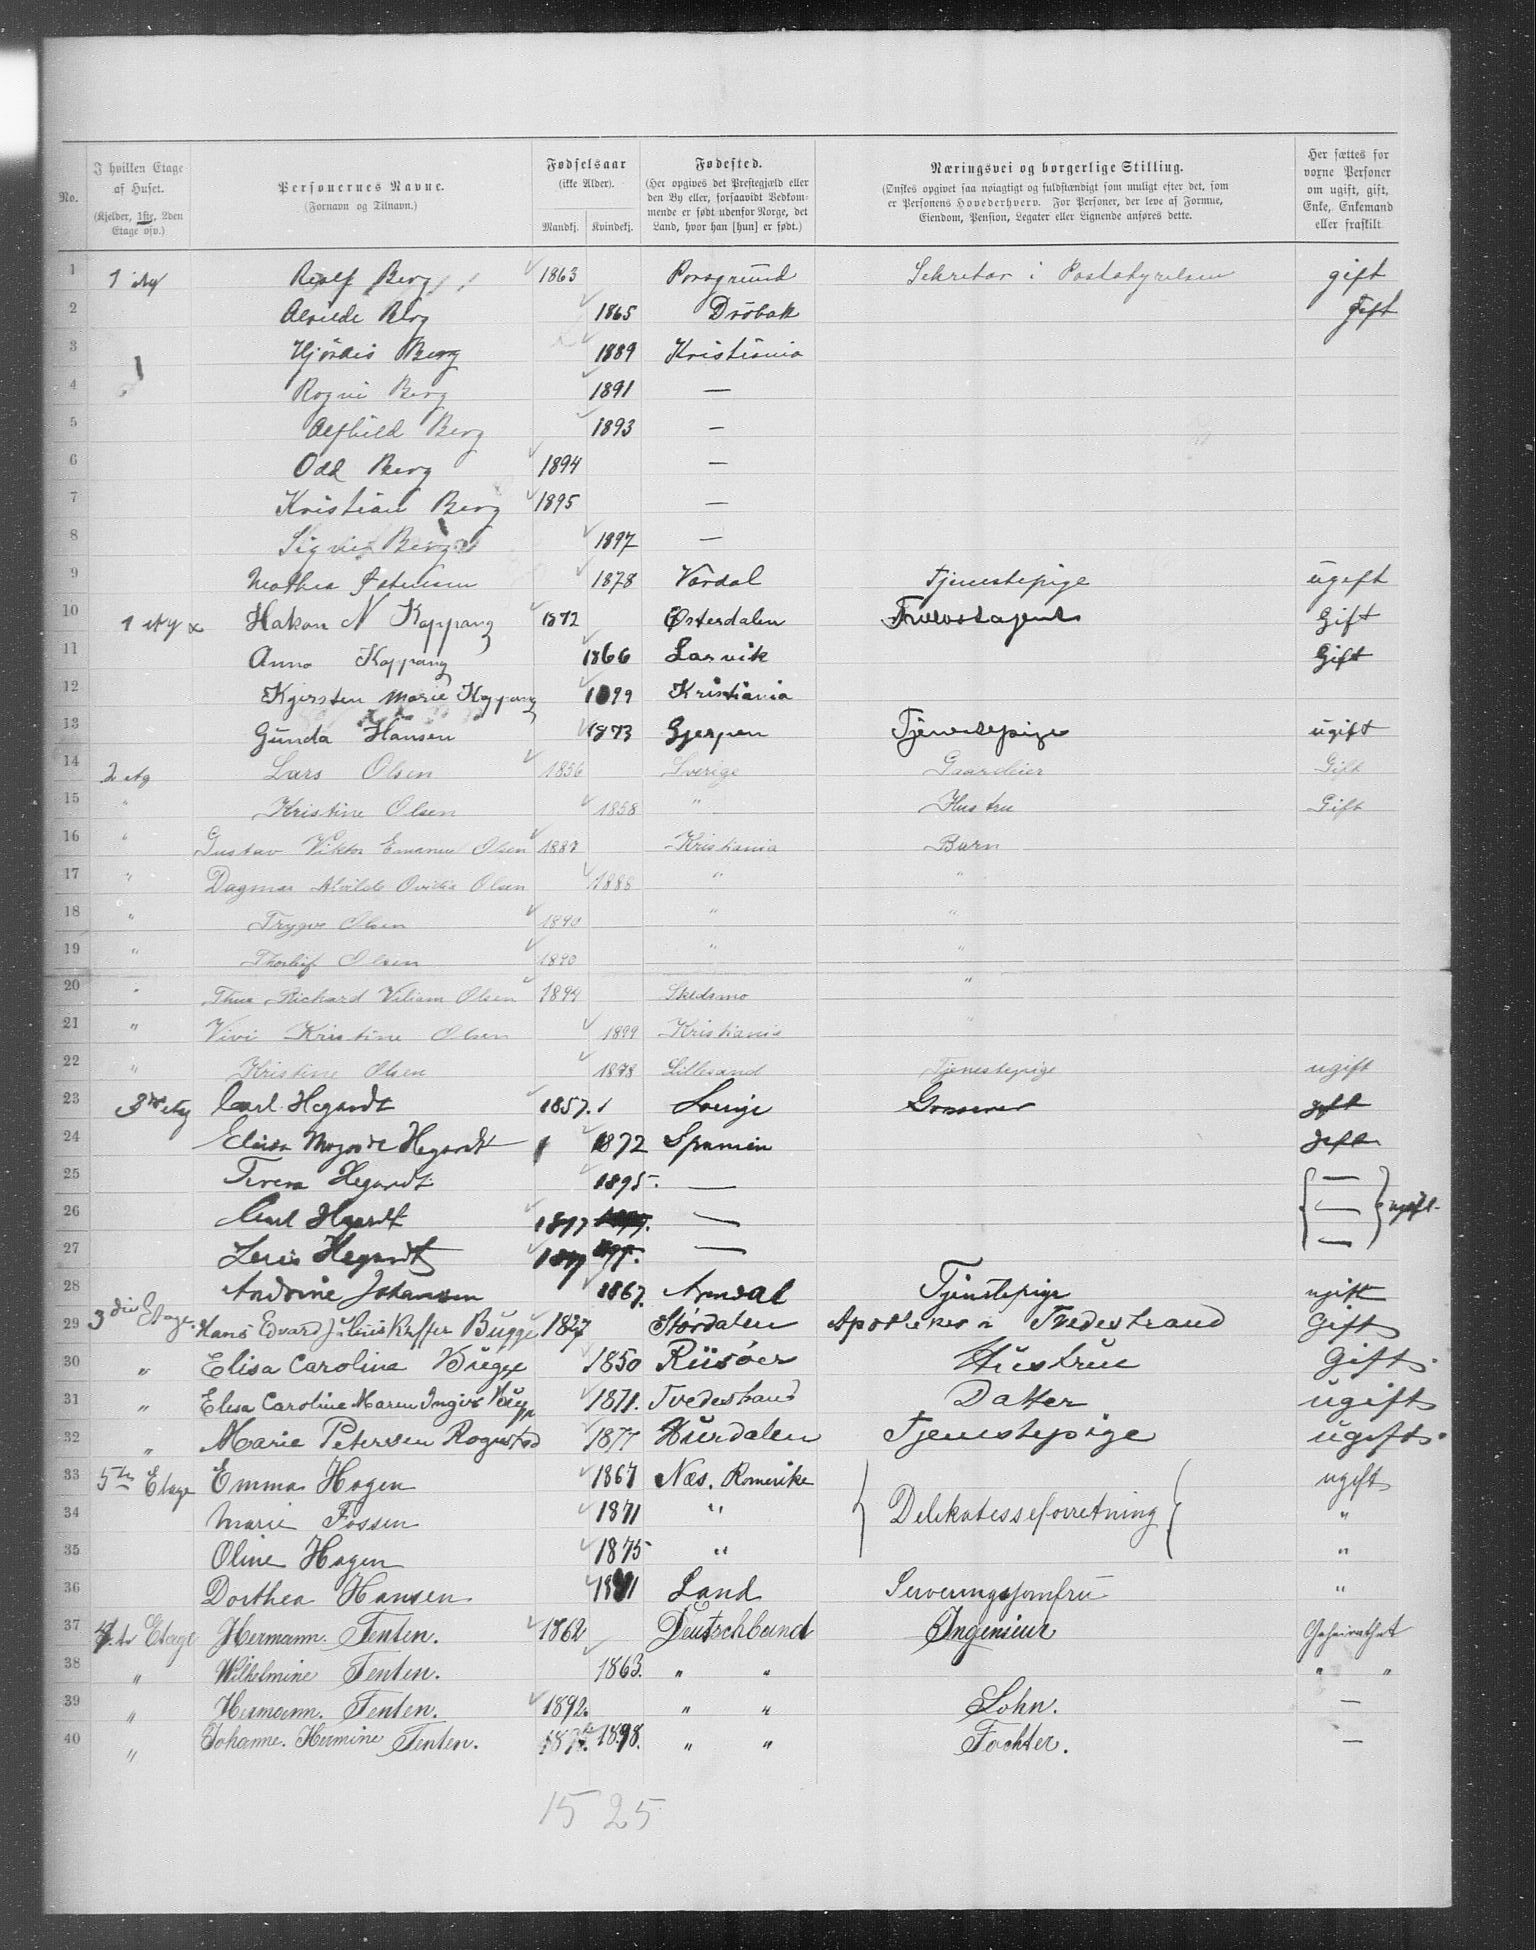 No.
I hvilken Etage af Huset.
(Kjelder, 1ste, 2den Etage osv.)
Personernes Navne.
(Fornavn og Tilnavn.)
Fødselsaar
(ikke Alder).
Mandkj. Kvindekj.
Fødested.
(Her opgives det Prestegjæld eller
den By eller, forsaavidt Vedkom-
mende er født udenfor Norge, det
Land, hvor han [hun] er født.)
Næringsvei og borgerlige Stilling.
(Ønskes opgivet saa nøiagtigt og fuldstændigt som muligt efter det, som
er Personens Hovederhverv. For Personer, der leve af Formue,
Eiendom, Pension, Legater eller Lignende anføres dette.
Her sættes for
voxne Personer
om ugift, gift,
Enke, Enkemand
eller fraskilt
1 1 etg Rolf Berg 1863 Porsgrund Sekretær i Poststyrelsen gift
2 Alvilde Berg 1865 Drøbak gift
3 Hjördis Berg 1889 Kristiania
4 Rogni Berg 1891 —
5 Alfhild Berg 1893 —
6 Odd Berg 1894 —
7 Kristian Berg 1895 —
8 Signe Berg 1897 —
9 Mathea Østensen 1878 Vardal Tjenestepige ugift
10 1 etg x Hakon N Koppang 1872 Østerdalen Gift
11 Anna Koppang 1866 Larvik Gift
12 Kjersten Marie Koppang 1899 Kristiania
13 Gunda Hansen 1873 Gjerpen Tjenestepige ugift
14 2 etg Lars Olsen 1856 Sverige Gaardeier Gift
15 " Kristine Olsen 1858 " Hustru Gift
16 " Gustav Viktor Emanuel Olsen 1887 Kristiania Barn
17 " Dagmar Alvilde Olsen 1888 " "
18 " Trygve Olsen 1890 " "
19 " Thorleif Olsen 1890 " "
20 " Richard Viliam Olsen 1894 Skedsmo "
21 " Vivi Kristine Olsen 1899 Kristiania "
22 " Kristine Olsen 1878 Lillesand Tjenestepige ugift
23 3die etg Carl Hegardt 1857. Sverige Grosserer gift
24 Elisa Hegardt 1872 Spanien gift
25 Teresa Hegardt 1895. — —
26 Carl Hegardt 1897 — — ugift.
27 Hegardt — —
28 Andrine Johansen 1867. Arendal Tjenstepige ugift
29 3die Etage. Hans Edvard Julius Bugge 1827 Størdalen Apotheker i Tvedestrand Gift
30 " Elisa Carolina Bugge 1850 Riisöer Hustrue Gift.
31 " Elisa Caroline Maren Bugge 1871. Tvedestrand Datter ugift
32 " Marie Petersen Rognstad 1877 Hurdalen Tjenestepige ugift.
33 5te Etage Emma Hagen 1867 Næs. Romerike ugift
34 Marie Fossen 1871 " Delikatesseforretning "
35 Oline Hagen 1875 " "
36 Dorthea Hansen 1871 Land Serveringsjomfru "
37 4.te Etage Hermann. Tenten. 1862 Deutschland Ingenieur Geheirathet
38 " Wilhelmine Tenten. 1863. " " " "
39 " Hermann. Tenten. 1892. " " Sohn. —
40 " Johanne. Hermine Tenten. 1898. " " Tochter. —
15 25